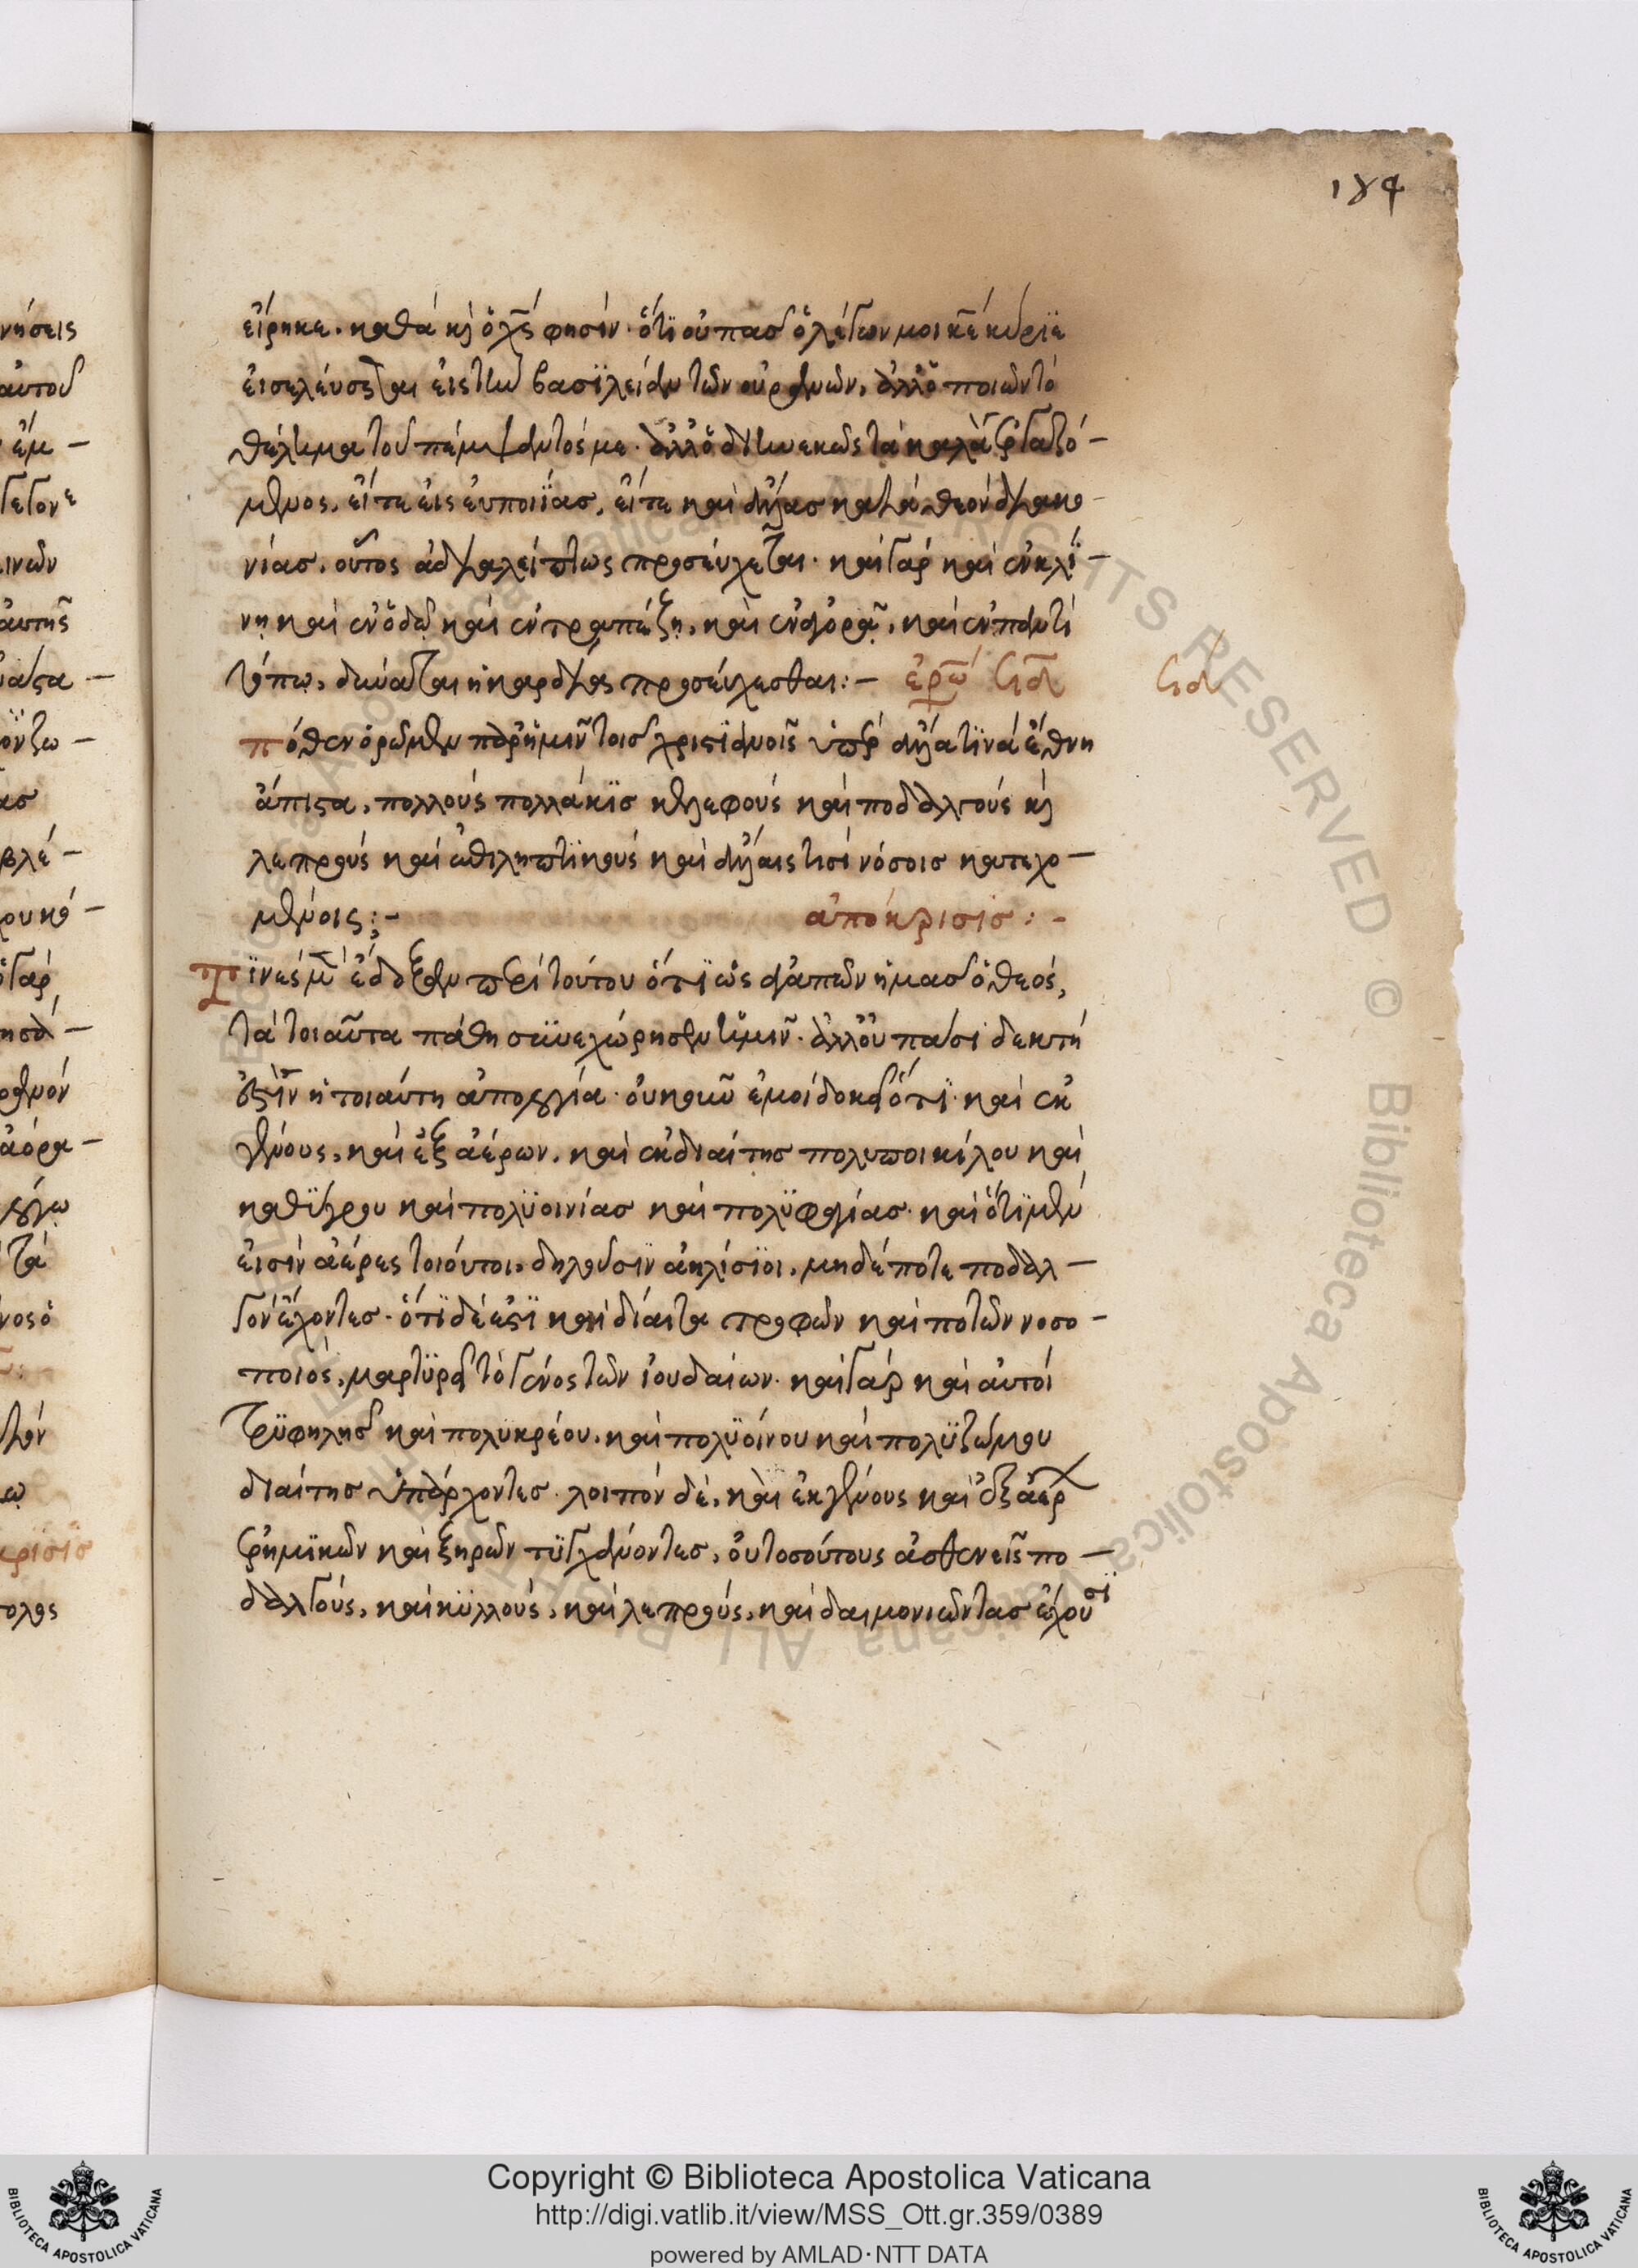 184
εἴρηκε. καθὰ κὶ ὁ χς φησίν. ὅτι οὐ πασ ὁ λέγων μοι κε κύριε
εἰσελεύσεται εἰς τὴν βασϊλείαν τῶν οὐρανῶν, ἀλλ' ὁ ποιῶν τὸ
θέλημα τοῦ πέμψαντός με. ἀλλ' ὁ διηνεκῶς τὰ καλὰ ἐργαζό-
μενος, εἴτε εἰς εὐποιΐας, εἴτε καὶ ἄλλας κατὰ θεὸν διακο-
νίας, οὗτος ἀδιαλείπτως προσεύχεται. καὶ γὰρ καὶ ἐν κλί-
νη καὶ ἐν ὁδῷ καὶ ἐν τραπέζη, καὶ ἐν ἀγορᾷ, καὶ ἐν παντὶ
τόπω, δύναται ἡ καρδία προσεύχεσθαι:- ἐρω ϛιδ
ϛιδ
πόθεν ὁρῶμεν παρ' ἡμῖν τοῖσ χριστϊανοῖς ὑπὲρ ἄλλα τϊνὰ ἔθνη
ἄπιστα, πολλοὺς πολλάκϊσ κελεφοὺς καὶ ποδαλγοὺς κὶ
λεπροὺς καὶ ἐπιληπτϊκοὺς καὶ ἄλλαις τισὶ νόσοισ κατεχο-
μένοις;- ἀπόκρισισ:-
Τϊνὲς μ ἔδοξαν περὶ τούτου ὅτϊ ὡς ἀγαπῶν ἡμασ ὁ θεός,
τὰ τοιαῦτα πάθη συνεχώρησεν ἡμῖν. ἀλλ' οὐ πᾶσι δεκτὴ
ἐστὶν ἡ τοιαύτη ἀπολογία. οὐκοῦν ἐμοὶ δοκεῖ ὅτϊ καὶ ἐκ
γένους, καὶ ἐξ ἀέρων, καὶ ἐκ διαίτησ πολυποικίλου καὶ
καθΰγρου καὶ πολϋοινίασ καὶ πολϋφαγίασ. καὶ ὅτϊ μὲν
εἰσὶν ἀέρες τοιοῦτοι, δηλοῦσϊν ἀκλίσϊοι, μηδέποτε ποδαλ-
γὸν ἔχοντεσ. ὅτϊ δέ ἐστϊ καὶ δίαιτα τροφῶν καὶ ποτῶν νοσο-
ποιός, μαρτϋρεῖ τὸ γένος τῶν ἰουδαίων. καὶ γὰρ καὶ αὐτοὶ
τρϋφηλῆσ καὶ πολυκρέου, καὶ πολϋοίνου καὶ πολϋζώμου
διαίτησ ὑπάρχοντεσ. λοιπὸν δὲ, καὶ ἐκ γένους καὶ ἐξ ἀέρ
ἐρημϊκῶν καὶ ξηρῶν τϋγχάνοντεσ, οὐ τοσούτους ἀσθενεῖς πο-
δαλγούς, καὶ κϋλλούς, καὶ λεπρούς, καὶ δαιμονιῶντασ ἔχουσϊ
Copyright © Biblioteca Apostolica Vaticana
http://digi.vatlib.it/view/MSS_Ott.gr.359/0389
powered by AMLAD·NTT DATA